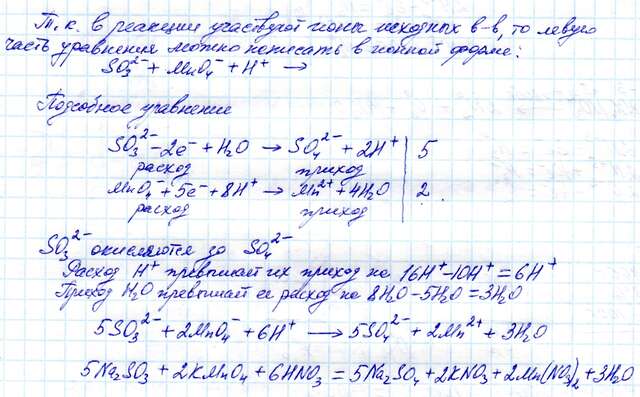 Т.к. в реакции участвуют ионы исходных в-в, то левую
часть уравнения можно написать в ионной форме:
SO₃²⁻ + MnO₄⁻ + H⁺ →
Подсобное уравнение
SO₃²⁻ – 2e⁻ + H₂O → SO₄²⁻ + 2H⁺ | 5
расход приход
MnO₄⁻ + 5e⁻ + 8H⁺ → Mn²⁺ + 4H₂O | 2
расход приход
SO₃²⁻ окисляются до SO₄²⁻
Расход H⁺ превышает их приход на 16H⁺–10H⁺ = 6H⁺
Приход H₂O превышает ее расход на 8H₂O–5H₂O = 3H₂O
5SO₃²⁻ + 2MnO₄⁻ + 6H⁺ → 5SO₄²⁻ + 2Mn²⁺ + 3H₂O
5Na₂SO₃ + 2KMnO₄ + 6HNO₃ = 5Na₂SO₄ + 2KNO₃ + 2Mn(NO₃)₂ + 3H₂O